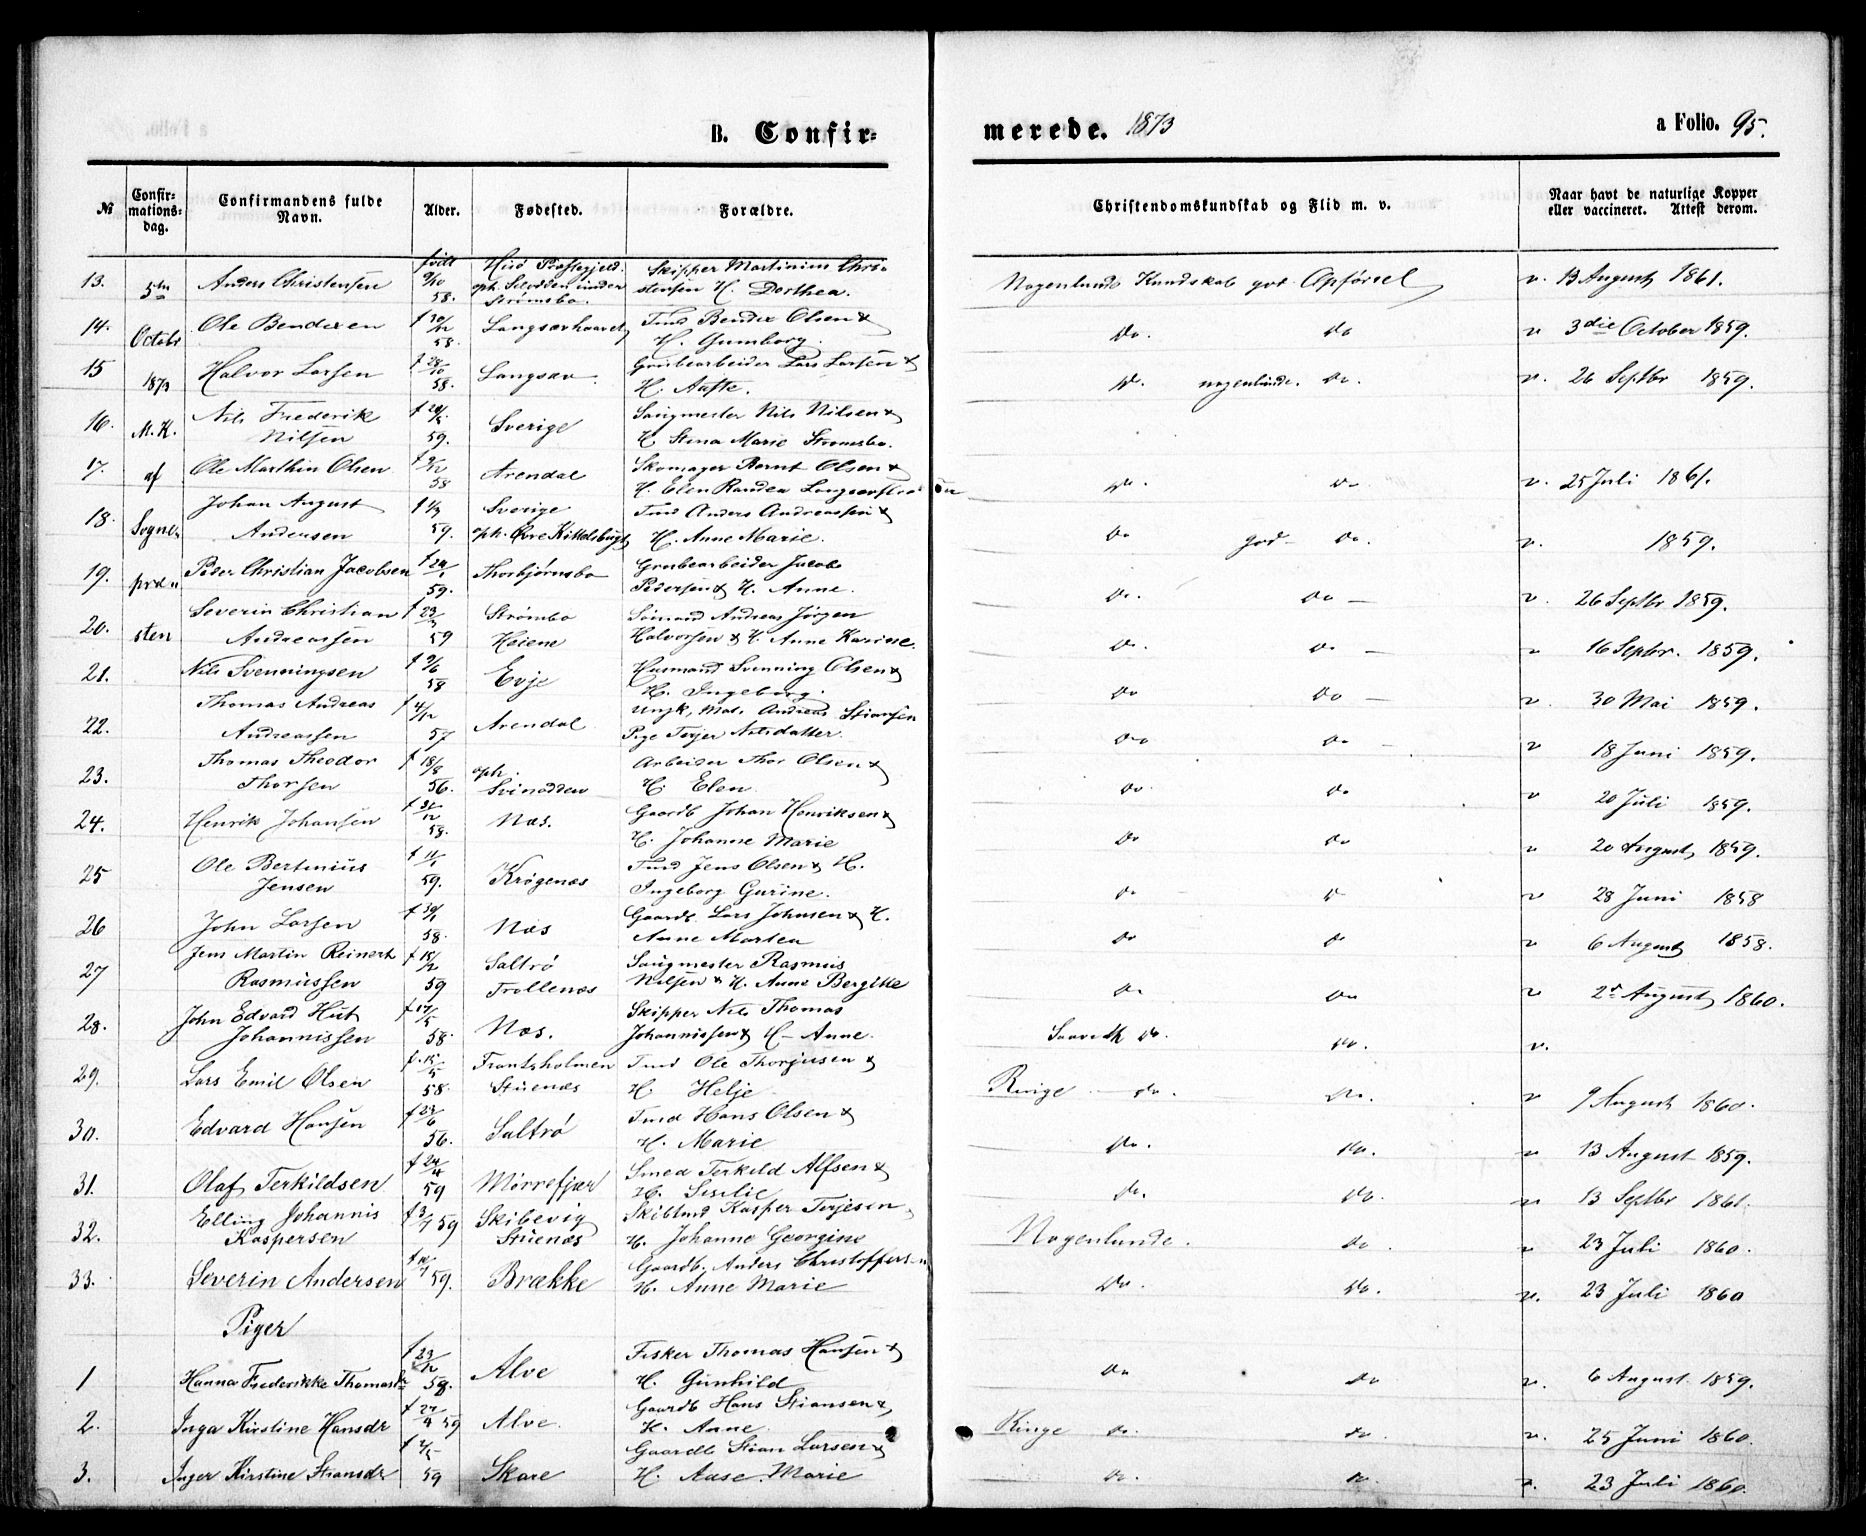 B. Confir-
merede. 1873
a Folio. 95.
№ Confir-mations-dag. Confirmandens fulde Navn. Alder. Fødested. Forældre. Christendomskundskab og Flid m. v. Naar havt de naturlige Kopper eller vaccineret. Attest derom.
13. 5te Anders Christensen født 9/10 58. Hisö Præstegjeld. oph. under Strømsbo. Skipper Martinius Christensen H. Dorthea. Nogenlunde Kundskab god Opførsel v. 13 August 1861.
14. Octobr Ole Bendixen f 30/12 58. Langsævhaavet Tmd Bendix Olsen & H. Gumborg. Do. Do v 3die October 1859.
15 1873 Halvor Larsen f 28/10 58. Langsæv. Grubearbeider Lars Larsen & H. Aaste. Do. nogenlunde. Do. v. 26 Septbr 1859.
16. M.K. Nils Frederik Nilsen 59. Sverige Saugmester Nils Nilsen & H Stina Marie Strømsbo.
17. af Ole Marthin Olsen f 9/12 58 Arendal Skomager Bernt Olsen & H. Elen Randea Do. Do v. 25 Juli 1861.
18. Sogne- Johan August Andersen f 1/3 59. Sverige oph. Øvre Kittelsbugt Tmd Anders Andreassen & H. Anne Marie. Do god Do. v. 1859.
19. præ- Peder Christian Jacobsen f 24/1 59. Thorbjørnsbo Grubearbeider Jacob Pedersen & H. Anne. Do. Do - v. 26 Septbr 1859.
20. sten Severin Christian Andreassen f 23/3 59 Strømbo Heiene Sömand Andreas Jörgen Halvorsen & H. Anne Karine. Do. Do - v 16 Septbr. 1859.
21. Nils Svenningsen f 9/6 58 Evje Husmand Svenning Olsen & H. Ingeborg. Do Do - v. 30 Mai 1859.
22. Thomas Andreas Andreassen f 4/12 57 Arendal Ungk, Mat. Andreas Stiansen Pige Terjer Nilsdatter. Do Do - v 18 Juni 1859.
23. Thomas Theodor Thorsen f 18/8 56. oph. Svinodden Arbeider Thor Olsen & H. Elen. Do Do v 20 Juli 1859.
24. Henrik Johansen f 31/12 58. Næs. Gaardb Johan Henriksen & H. Johanne Marie Do Do v 20 August 1859.
25 Ole Bertinius Jensen f 11/1 59. Krøgenæs Tmd Jens Olsen & H. Ingeborg Gurine. Do Do v 28 Juni 1858
26 John Larsen f 30/1 58. Næs Gaardb. Lars Johnsen & H. Anne Martea Do Do v 6 August 1858.
27 Jens Martin Reinert Rasmussen f 15/2 59 Saltrö Trollenæs Saugmester Rasmus Nilsen & H. Anne Bergitte Do Do v 2d August 1860.
28. John Edvard Hut Johannissen f 17/5 58. Næs. Skipper Nils Thomas Johannissen & H - Anne. Do. Do. v.
29. Lars Emil Olsen f. 15/5 58. Frantsholmen Stuenæs Tmd Ole Thorjusen & H Helje Ringe Do. Do. v 9 August 1860.
30. Edvard Hansen f 23/6 56. Saltrö Tmd Hans Olsen & H. Marie Do. Do. v 13 August 1859.
31. Olaf Terkildsen f 24/4 59 Mörrefjær Smed Terkild Alfsen & H. Siselie Do. Do. v 13 Septbr 1861.
32. Elling Johannis Kaspersen f 3/7 59 Skibevig Stuenæs Kasper Terjesen H. Johanne Georgine Nogenlunde. Do. v 23 Juli 1860.
33. Severin Andersen 59. Brække Gaardb. Anders Christoffersen H. Anne Marie Do. Do. v. 23 Juli 1860
Piger
1 Hanna Frederikke Thomasd f 23/12 58. Alve Fisker Thomas Hansen & H. Gunhild Do Do v. 6 August 1859.
2. Inga Kirstine Hansdr f 27/4 59 Alve. Gaardb Hans Stiansen & H. Anne Ringe Do. Do. v. 25 Juni 1860.
3. Inger Kirstine Stiansdr. 59 Skare Gaardb Stian Larsen & H. Aase Marie Do. Do. v. 23 Juli 1860.